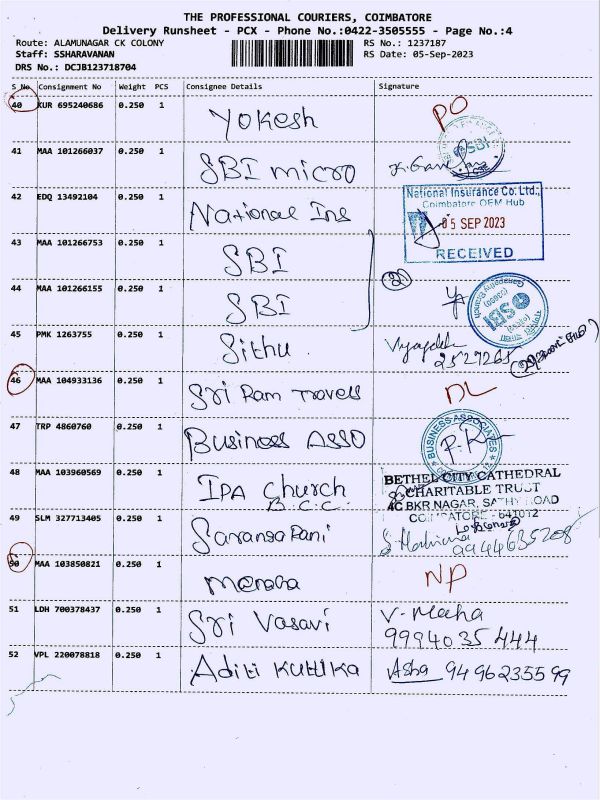 THE PROFESSIONAL COURIERS, COIMBATORE
Delivery Runsheet - PCX - Phone No.:0422-3505555 - Page No.:4
Route: ALAMUNAGAR CK COLONY
RS No.: 1237187
Staff: SSHARAVANAN
RS Date: 05-Sep-2023
DRS No.: DCJB123718704
S No Consignment No Weight PCS Consignee Details Signature
40 KUR 695240686 0.250 1 Yokesh PO
41 MAA 101266037 0.250 1 SBI micro
SBI
42 EDQ 13492104 0.250 1 National Ins
National Insurance Co. Ltd.,
Coimbatore OEM Hub
05 SEP 2023
RECEIVED
43 MAA 101266753 0.250 1 SBI
44 MAA 101266155 0.250 1 SBI
2
SBI
45 PMK 1263755 0.250 1 Sithu
46 MAA 104933136 0.250 1 Sri Ram Travels DL
47 TRP 4860760 0.250 1 Business ASSO
BUSINESS ASSOCIATES
48 MAA 103960569 0.250 1 IPA Church
B.C.C.
BETHEL CITY CATHEDRAL
CHARITABLE TRUST
4C BKR NAGAR, SATHY ROAD
COIMBATORE - 641012
49 SLM 327713405 0.250 1 Saransa Rani
9944635208
50 MAA 103850821 0.250 1 NP
51 LDH 700378437 0.250 1 Sri Vasavi V. Maha
9994035444
52 VPL 220078818 0.250 1 Aditi Kuttika Asha 9496235599